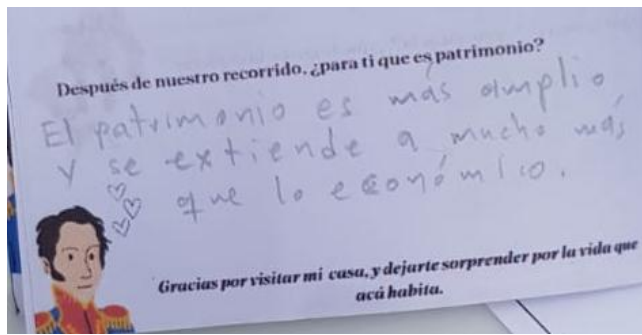 Después de nuestro recorrido, ¿para ti que es patrimonio?
El patrimonio es más amplio
y se extiende a mucho más
que lo económico.
Gracias por visitar mi casa, y dejarte sorprender por la vida que
acá habita.